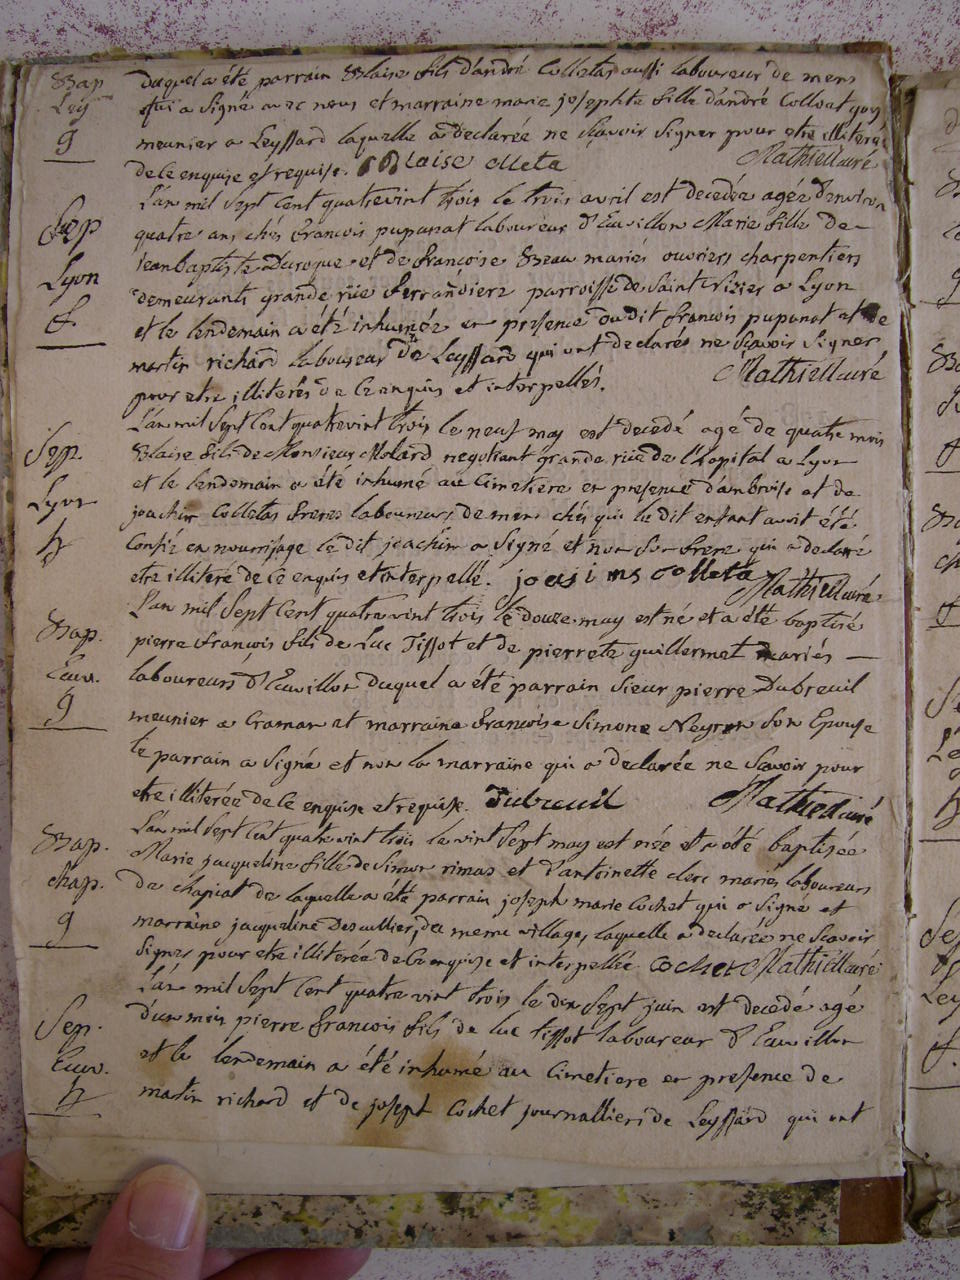 Bap
Ley
g
duquel a été parrain Blaise fils d'andré Colletas aussi laboureur de mens
qui a signé avec nous et marraine marie josephte fille d'andré Collvat
meunier a Leyssard laquelle a declarée ne scavoir signer pour etre illiterée
de ce enquise et requise. Blaise olleta Mathieu curé
Sep
Lyon
f.
L'an mil sept cent quatrevint trois le trois avril est decedée agée d'environ
quatre ans chés francois pupunat laboureur d'Euvillon Marie fille de
jean baptiste Duroque et de françoise Beau mariés ouvriers charpentiers
demeurants grande rüe ferrandiere parroisse de saint Nizier a Lyon
et le lendemain a été inhumée en presence dudit francois pupunat et de
martin richard laboureur de Leyssard qui ont declarés ne scavoir signer
pour etre illiterés de ce enquis et interpellés. Mathieu curé
Sep.
Lyon
h
L'an mil sept cent quatrevint trois le neuf may est decedé agé de quatre mois
Blaise fils de Monsieur Molard negotiant grande rüe de l'hopital a Lyon
et le lendemain a été inhumé au cimetiere en presence d'ambroise et de
joachim Colletas freres laboureurs de mens chés qui le dit enfant avoit été
confié en nourrissage le dit joachim a signé et non son frere qui a declaré
etre illiteré de ce enquis et interpellé. joasims colleta Mathieu curé
Bap.
Euv.
g
L'an mil sept cent quatre vint trois le douze may est né et a été baptisé
pierre francois fils de Luc Tissot et de pierrete guillermet mariés
laboureurs d'Euvillon duquel a été parrain sieur pierre Dubreuil
meunier a Craman et marraine francoise Simone Neyron son Epouse
le parrain a signé et non la marraine qui a declarée ne scavoir pour
etre illiterée de ce enquise et requise. Dubreuil Mathieu curé
Bap.
chap.
g
L'an mil sept cent quatre vint trois le vint sept may est née et a été baptisée
Marie jacqueline fille de simon rimas et d'antoinette clerc mariés laboureurs
de chapiat de laquelle a été parrain joseph marie Cochet qui a signé et
marraine jacqueline du meme village, laquelle a declarée ne scavoir
signer pour etre illiterée de ce enquise et interpellée cochet Mathieu curé
Sep.
Euv.
h
L'an mil sept cent quatre vint trois le dix sept juin est decedé agé
d'un mois pierre francois fils de luc tissot laboureur d'Euvillon
et le lendemain a été inhumé au cimetiere en presence de
matin richard et de joseph Cochet journalliers de Leyssard qui ont